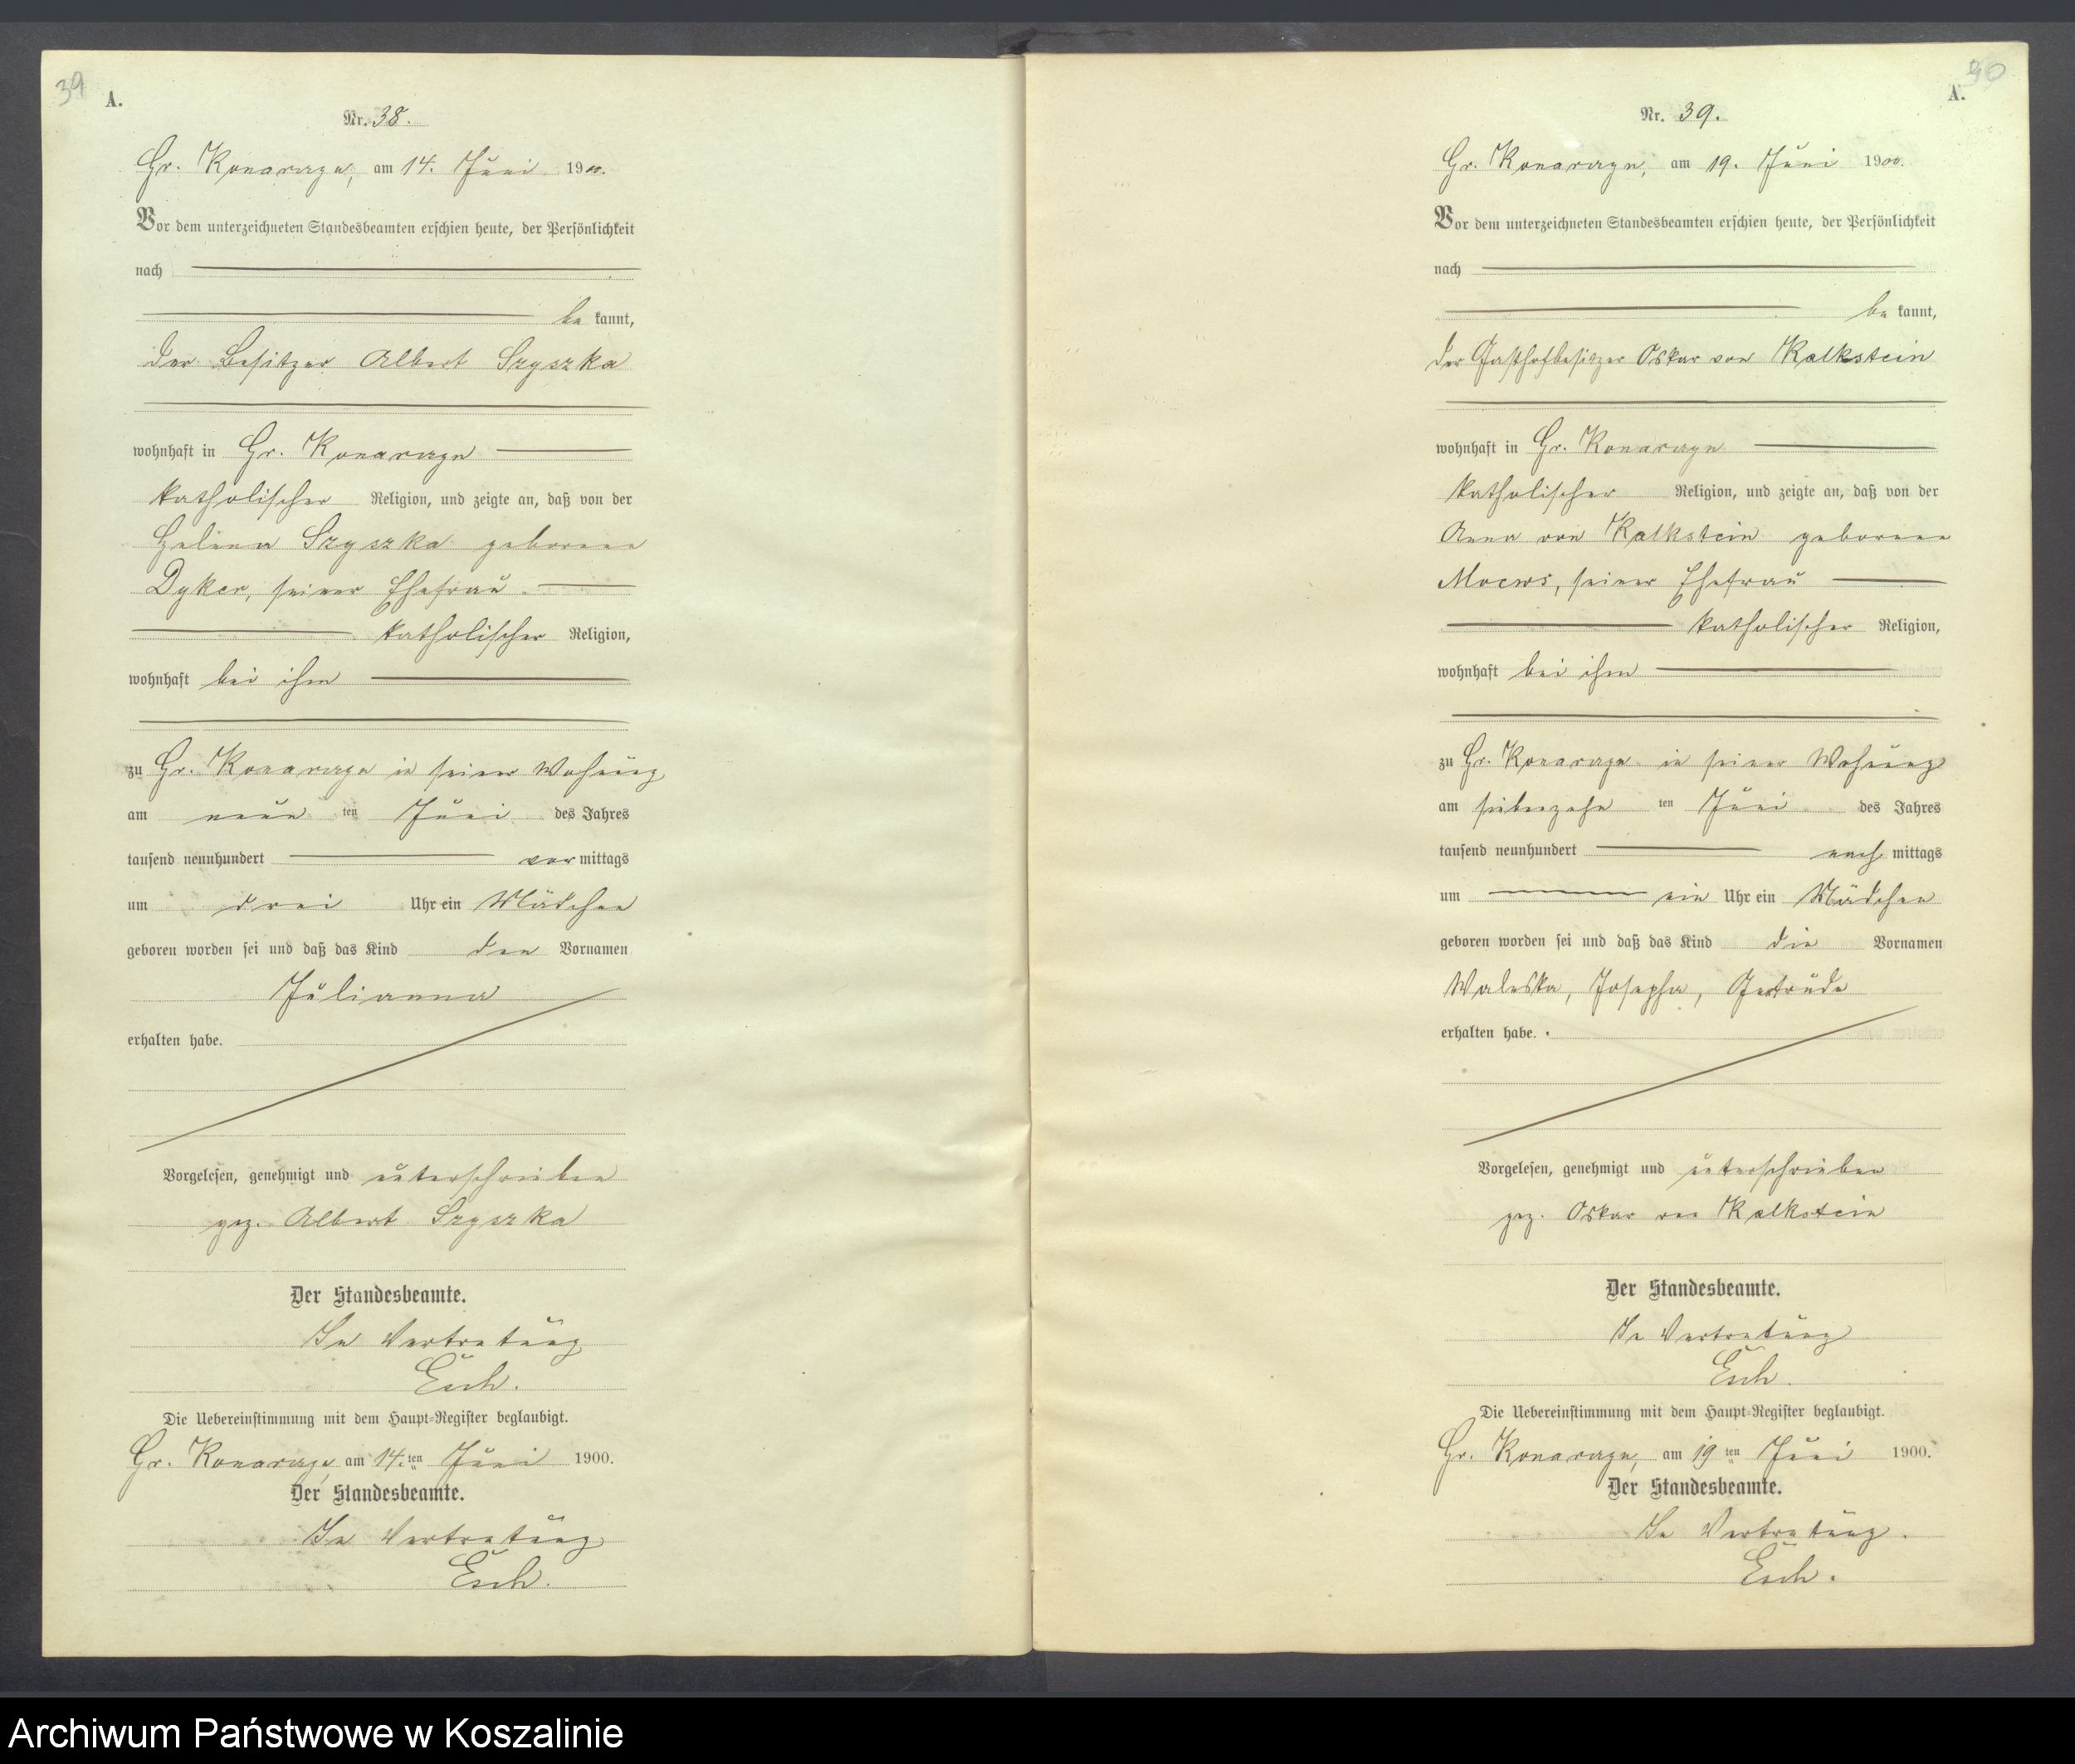 39
A.
Nr. 38.
Gr. Konarczyn, am 14. Juni 1900.
Vor dem unterzeichneten Standesbeamten erschien heute, der Persönlichkeit
nach
be kannt,
der Besitzer Albert Szyszka
wohnhaft in Gr. Konarczyn
katholischer Religion, und zeigte an, daß von der
Helena Szyszka geborene
Dyker, seiner Ehefrau
katholischer Religion,
wohnhaft bei ihm
zu Gr. Konarczyn in seiner Wohnung
am neun ten Juni des Jahres
tausend neunhundert vor mittags
um drei Uhr ein Mädchen
geboren worden sei und daß das Kind den Vornamen
Julianna
erhalten habe.
Vorgelesen, genehmigt und unterschrieben
gez. Albert Szyszka
Der Standesbeamte.
In Vertretung
Esch.
Die Uebereinstimmung mit dem Haupt-Register beglaubigt.
Gr. Konarczyn, am 14. ten Juni 1900.
Der Standesbeamte.
In Vertretung
Esch.
A.
Nr. 39.
Gr. Konarczyn, am 19. Juni 1900.
Vor dem unterzeichneten Standesbeamten erschien heute, der Persönlichkeit
nach
be kannt,
der Gasthofbesitzer Oskar von Kalkstein
wohnhaft in Gr. Konarczyn
katholischer Religion, und zeigte an, daß von der
Anna von Kalkstein geborene
Moews, seiner Ehefrau
katholischer Religion,
wohnhaft bei ihm
zu Gr. Konarczyn in seiner Wohnung
am siebenzehn ten Juni des Jahres
tausend neunhundert nach mittags
um ein Uhr ein Mädchen
geboren worden sei und daß das Kind die Vornamen
Waleska, Josepha, Gertrude
erhalten habe.
Vorgelesen, genehmigt und unterschrieben
gez. Oskar von Kalkstein
Der Standesbeamte.
In Vertretung
Esch.
Die Uebereinstimmung mit dem Haupt-Register beglaubigt.
Gr. Konarczyn, am 19 ten Juni 1900.
Der Standesbeamte.
In Vertretung.
Esch.
Archiwum Państwowe w Koszalinie